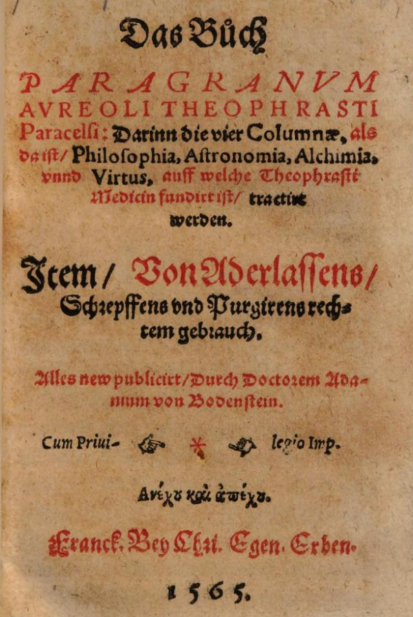 Das Bůch
PARAGRANVM
AVREOLI THEOPHRASTI
Paracelsi: Darinn die vier Columnæ, als
da ist/ Philosophia, Astronomia, Alchimia,
vnnd Virtus, auff welche Theophrasti
Medicin fundirt ist/ tractirt
werden.
Item/ Von Aderlassens/
Schrepffens vnd Purgirens rech-
tem gebrauch.
Alles new publicirt/ Durch Doctorem Ada-
mum von Bodenstein.
Cum Priui- ☞ * ☜ legio Imp.
Ανέχου καὶ ἀπέχου.
Franck. Bey Chri. Egen. Erben.
1565.